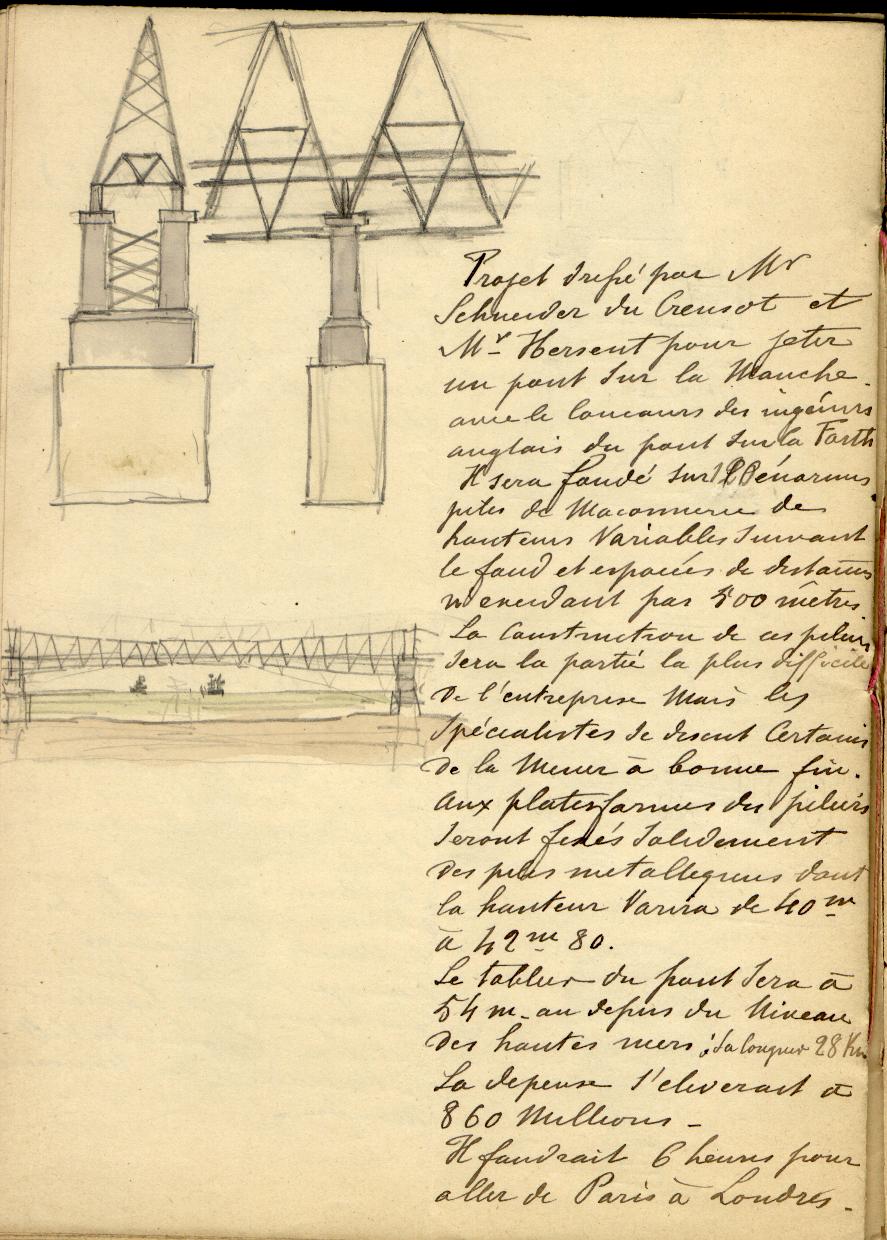 Projet dressé par Mr
Schneider du Creusot et
Mr Hersent pour jeter
un pont sur la Manche.
avec le concours des ingénieurs
anglais du pont sur la Forth
Il sera fondé sur énormes
piles de Maconnerie de
hauteurs Variables suivant
le fond et espacées de distances
n'excedant pas 500 mètres
La Construction de ces piliers
sera la partie la plus difficile
de l'entreprise Mais les
Spécialistes se disent Certains
de la Mener à bonne fin.
Aux platesformes des piliers
seront fixés Solidement
des piles metalliques dont
la hauteur Variera de 40 m
à 42 m 80.
Le tablier du pont Sera à
54 m. au dessus du Niveau
des hautes mers, sa longueur 28 Km.
La depense s'eleverait à
860 Millions -
Il faudrait 6 heures pour
aller de Paris à Londres -